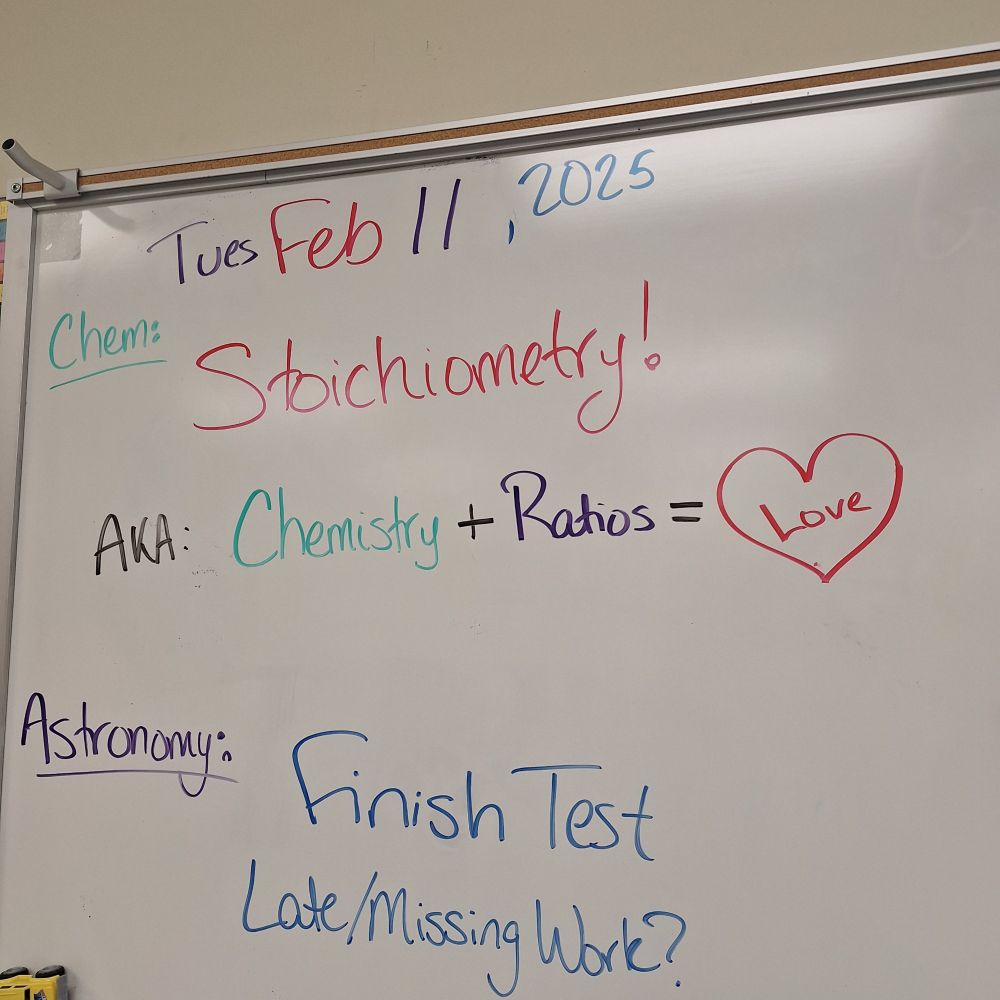 Tues Feb 11, 2025
Chem:
Stoichiometry!
AKA: Chemistry + Ratios = Love
Astronomy:
Finish Test
Late/Missing Work?